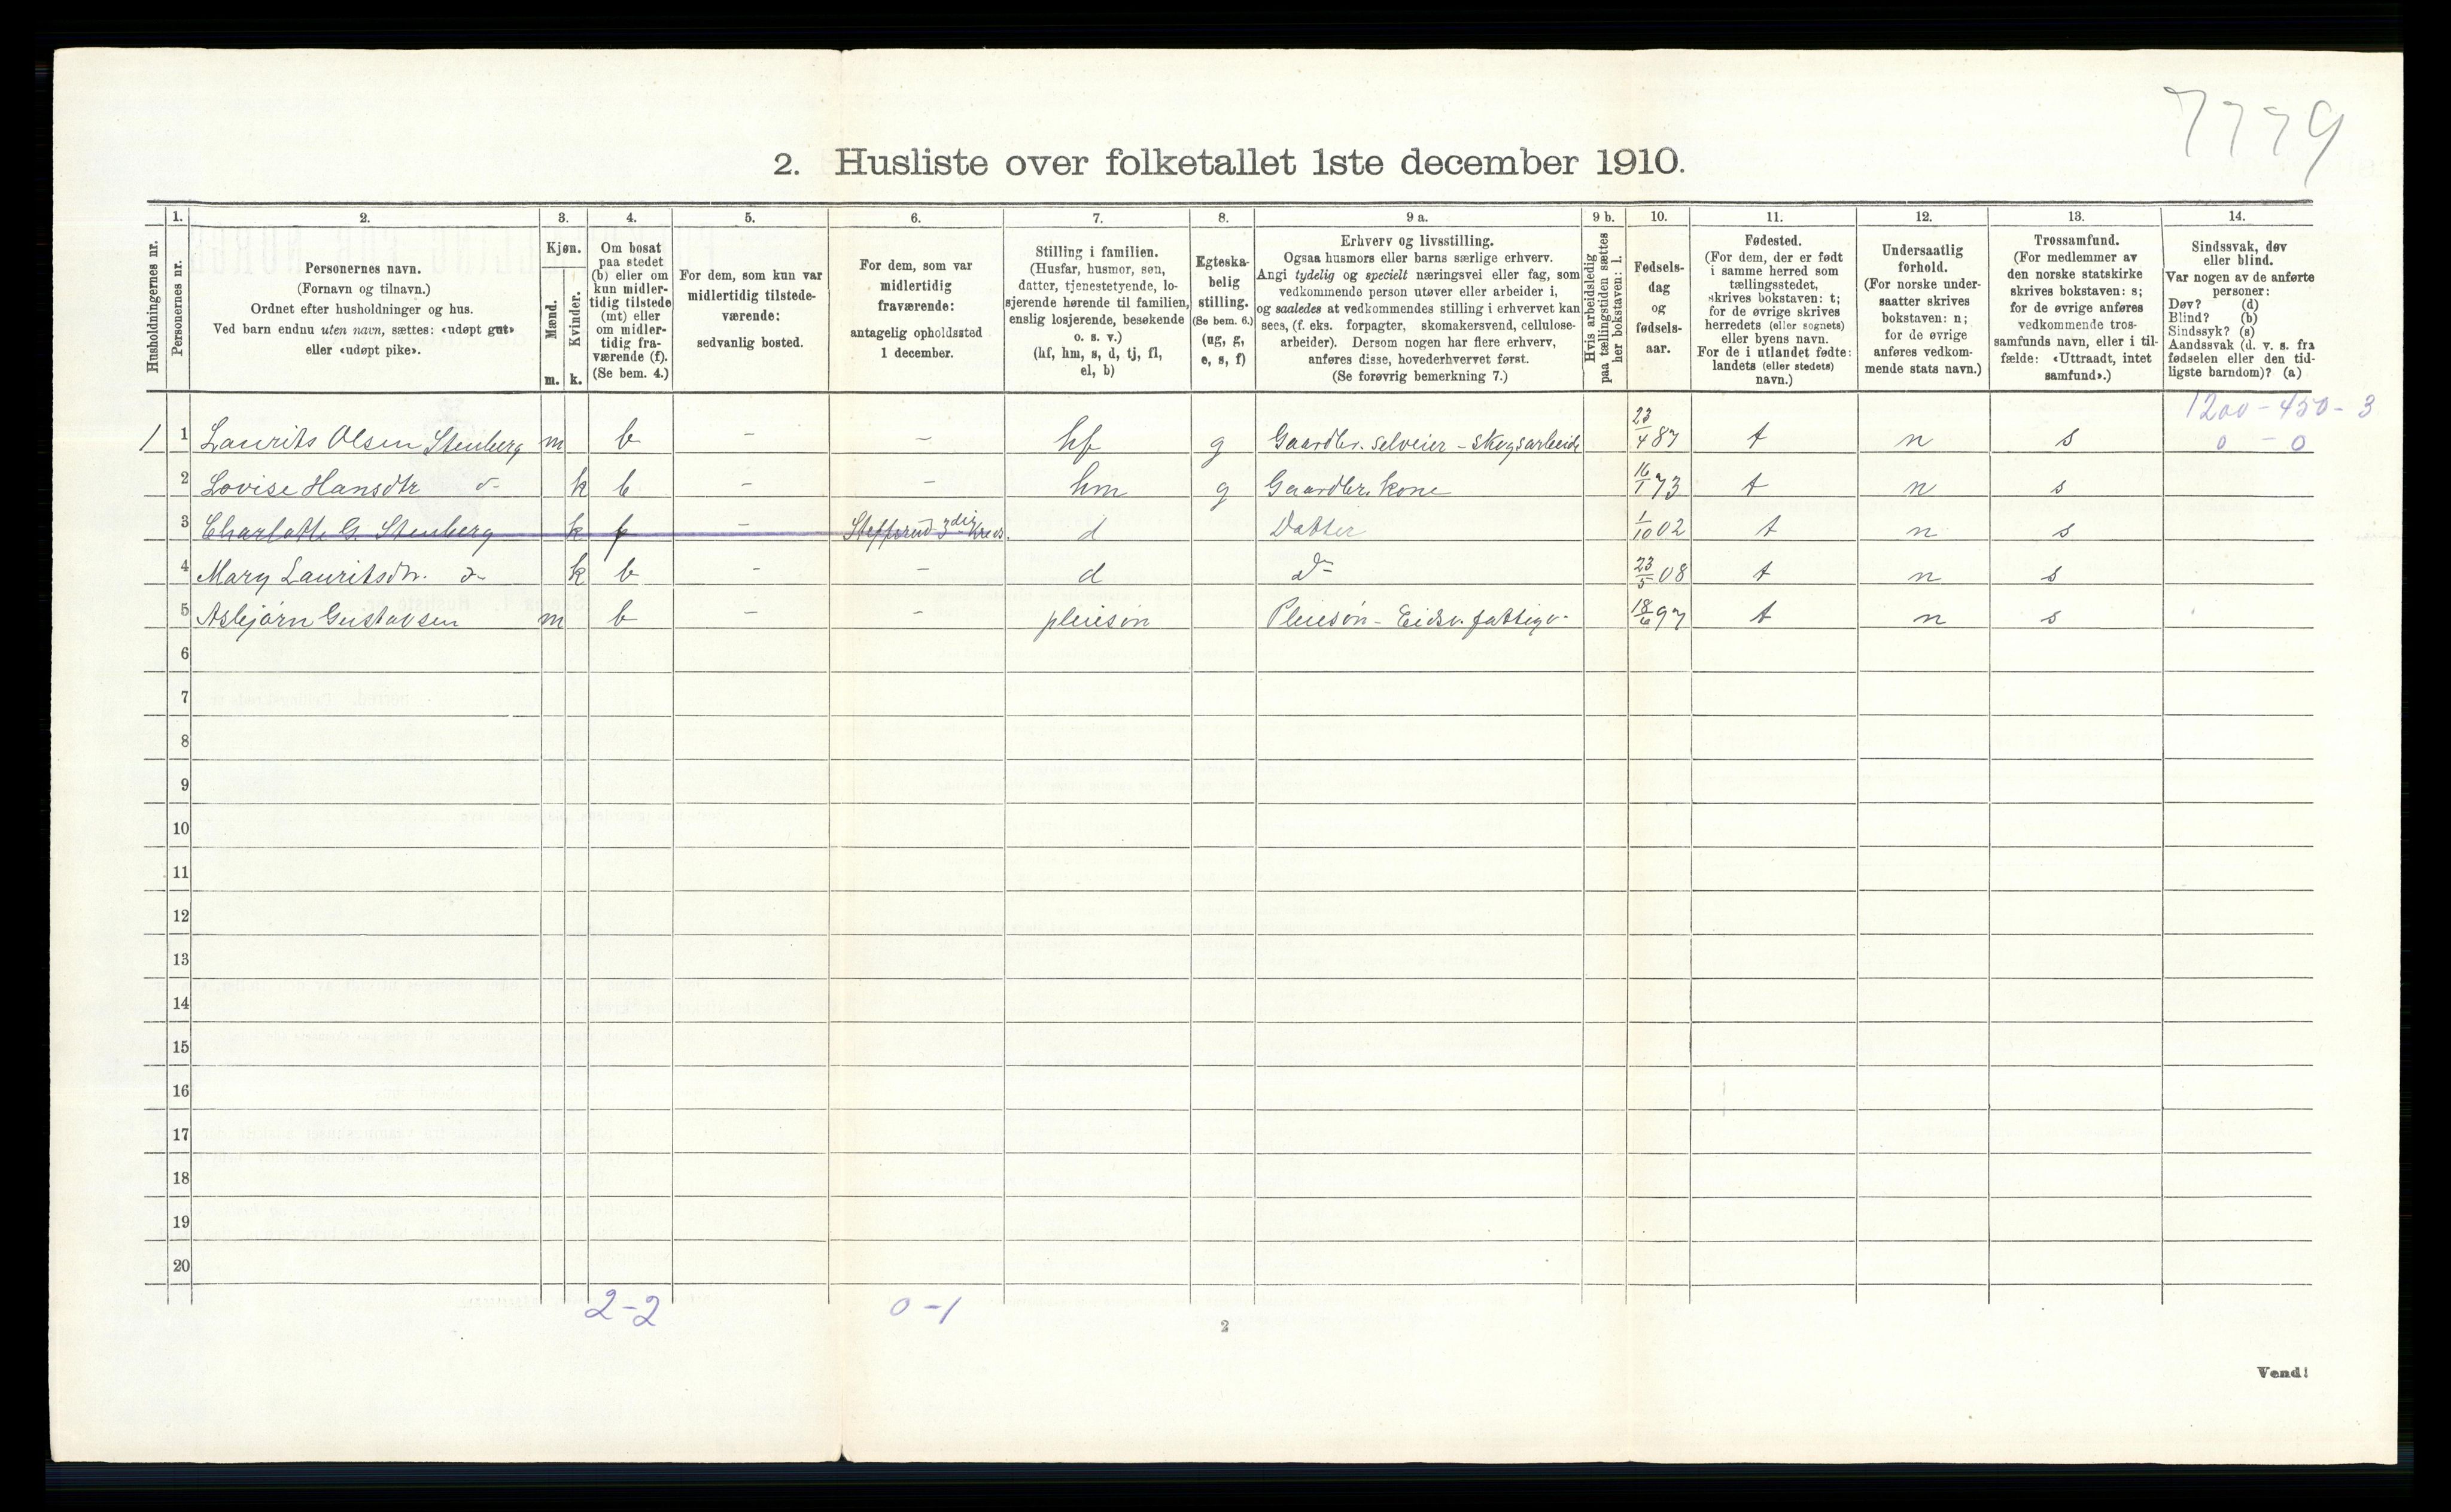 7779
2. Husliste over folketallet 1ste december 1910.
Husholdningernes nr.
1. Personernes nr.
2. Personernes navn.
(Fornavn og tilnavn.)
Ordnet efter husholdninger og hus.
Ved barn endnu uten navn, sættes: «udøpt gut»
eller «udøpt pike».
3. Kjøn.
Mænd. m.
Kvinder. k.
4. Om bosat
paa stedet
(b) eller om
kun midler-
tidig tilstede
(mt) eller
om midler-
tidig fra-
værende (f).
(Se bem. 4.)
5. For dem, som kun var
midlertidig tilstede-
værende:
sedvanlig bosted.
6. For dem, som var
midlertidig
fraværende:
antagelig opholdssted
1 december.
7. Stilling i familien.
(Husfar, husmor, søn,
datter, tjenestetyende, lo-
sjerende hørende til familien,
enslig losjerende, besøkende
o. s. v.)
(hf, hm, s, d, tj, fl,
el, b)
8. Egteska-
belig
stilling.
(Se bem. 6.)
(ug, g,
e, s, f)
9 a. Erhverv og livsstilling.
Ogsaa husmors eller barns særlige erhverv.
Angi tydelig og specielt næringsvei eller fag, som
vedkommende person utøver eller arbeider i,
og saaledes at vedkommendes stilling i erhvervet kan
sees, (f. eks. forpagter, skomakersvend, cellulose-
arbeider). Dersom nogen har flere erhverv,
anføres disse, hovederhvervet først.
(Se forøvrig bemerkning 7.)
9 b. Hvis arbeidsledig
paa tællingstiden sættes
her bokstaven: l.
10. Fødsels-
dag
og
fødsels-
aar.
11. Fødested.
(For dem, der er født
i samme herred som
tællingsstedet,
skrives bokstaven: t;
for de øvrige skrives
herredets (eller sognets)
eller byens navn.
For de i utlandet fødte:
landets (eller stedets)
navn.)
12. Undersaatlig
forhold.
(For norske under-
saatter skrives
bokstaven: n;
for de øvrige
anføres vedkom-
mende stats navn.)
13. Trossamfund.
(For medlemmer av
den norske statskirke
skrives bokstaven: s;
for de øvrige anføres
vedkommende tros-
samfunds navn, eller i til-
fælde: «Uttraadt, intet
samfund».)
14. Sindssvak, døv
eller blind.
Var nogen av de anførte
personer:
Døv? (d)
Blind? (b)
Sindssyk? (s)
Aandssvak (d. v. s. fra
fødselen eller den tid-
ligste barndom)? (a)
1200 - 450 - 3
1 1 Laurits Olsen Stenberg m b - - hf g Gaardbr. selveier - skogsarbeide 23/4 87 t n s 0 - 0
2 Lovise Hansdtr d- k b - - hm g Gaardbr. kone 16/1 73 t n s
3 Charlotte G. Stenberg k f - 3die Kreds. d Datter 1/10 02 t n s
4 Mary Lauritsdtr. d- k b - - d do 23/5 08 t n s
5 Asbjørn Gustavsen m b - - pleiesøn Pleiesøn - Eidsv. fattigv. 18/6 97 t n s
6
7
8
9
10
11
12
13
14
15
16
17
18
19
20
2-2 0-1
2
Vend!